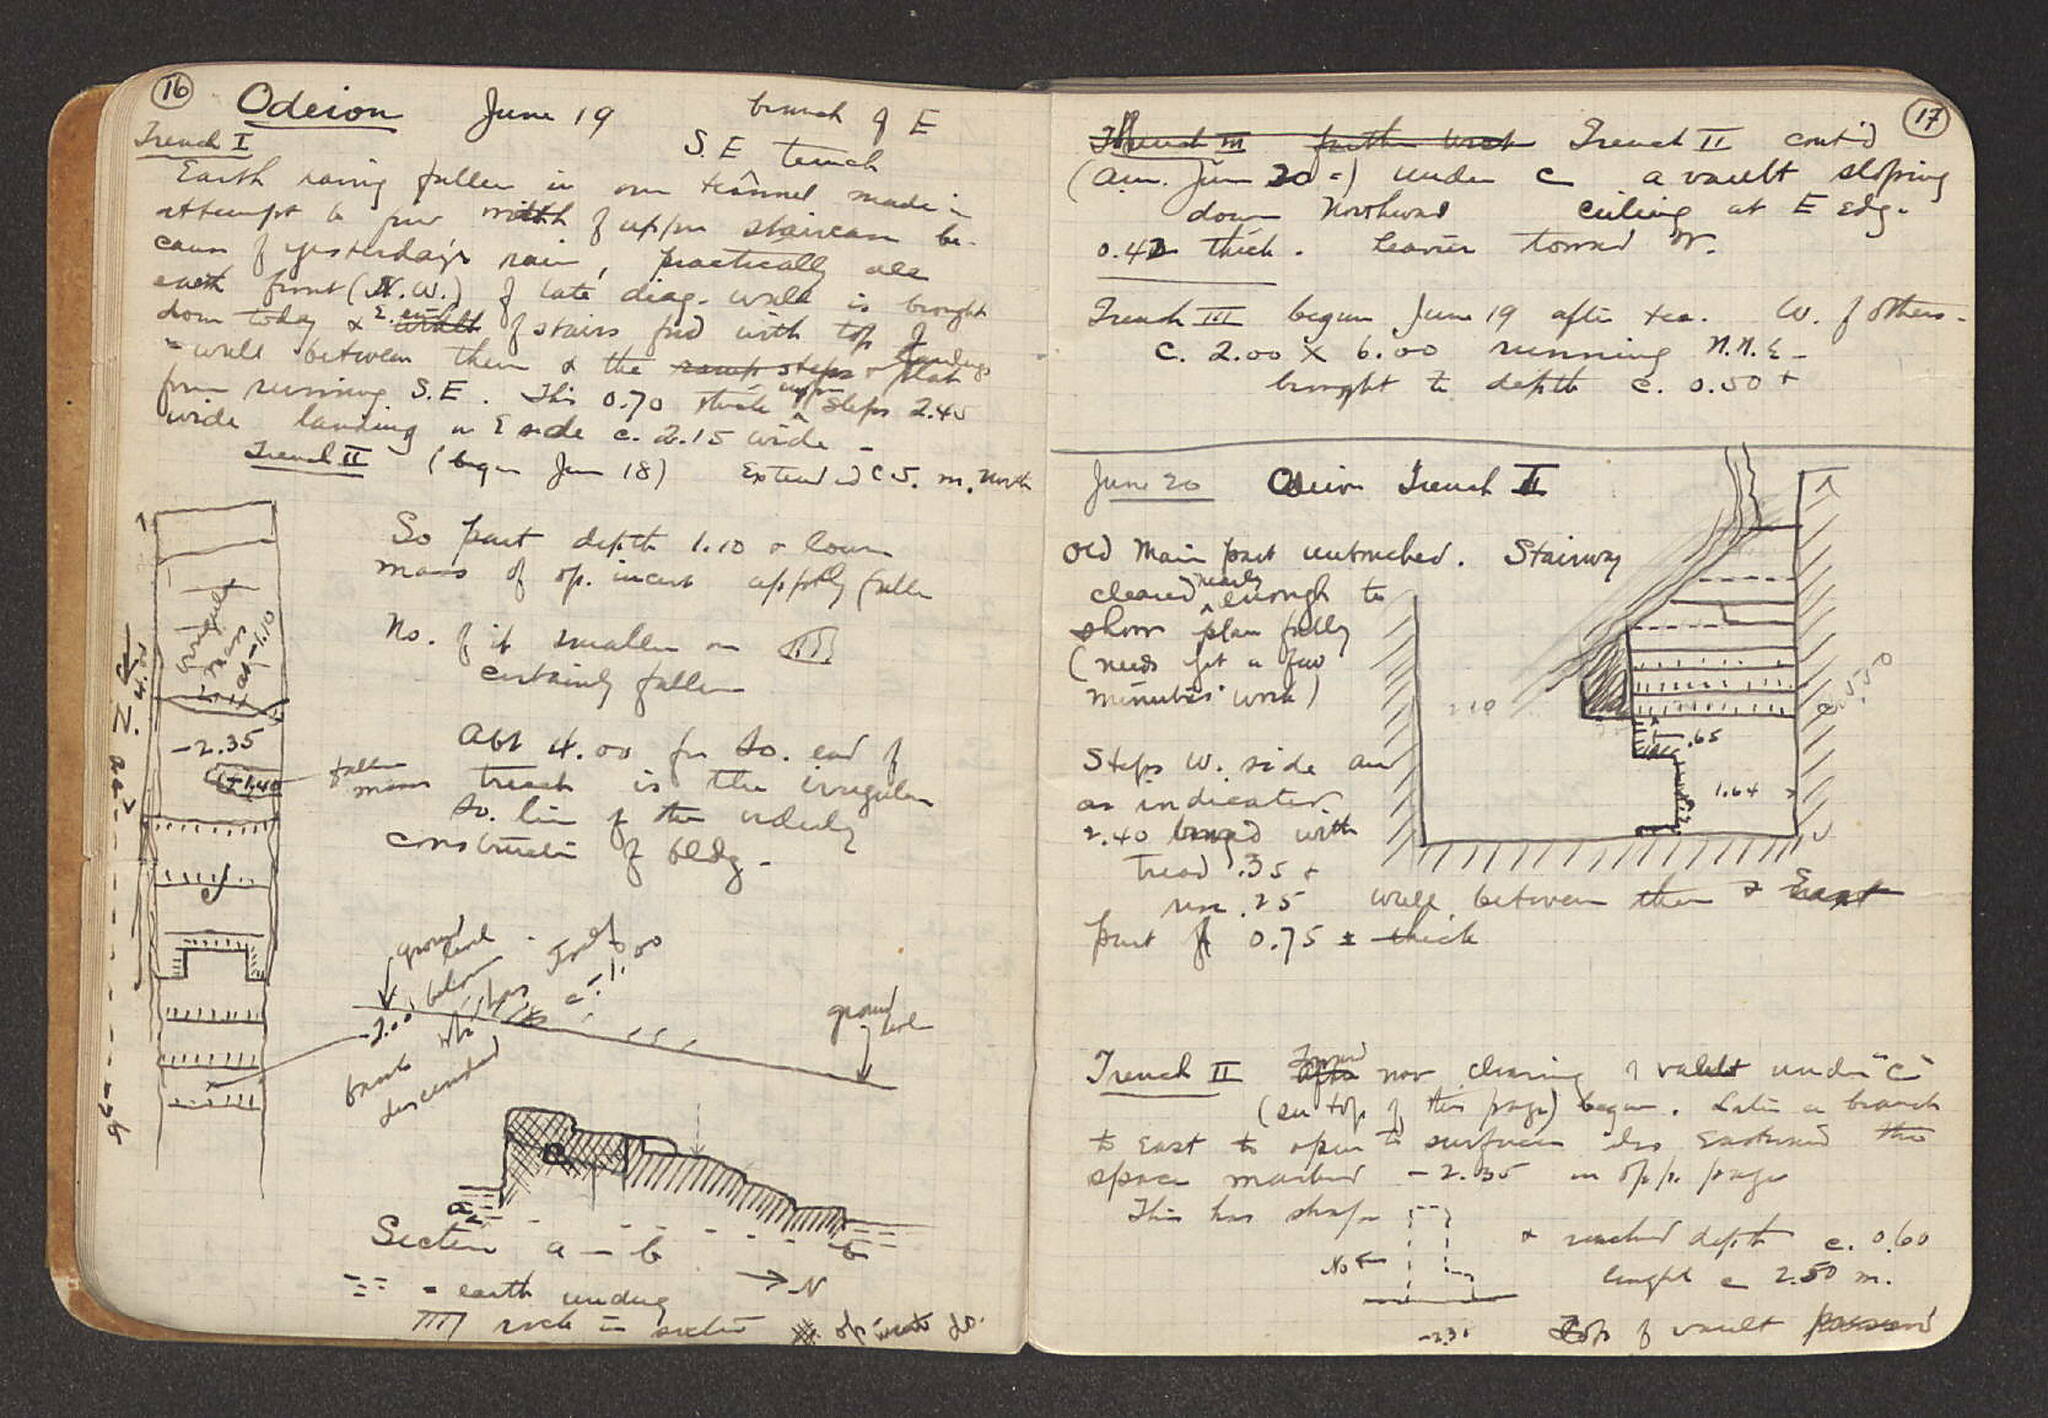 16
Odeion June 19 branch of E
Trench I S. E trench
Earth having fallen in our tunnel made in
attempt to find width of upper staircase be-
cause of yesterday's rain, practically all
earth front (N.W.) of late diag. wall is brought
down today & E. end of stairs fnd with top of
wall between them & the ramp steps & landings plat
form running S.E. This 0.70 thick upper steps 2.40
wide landing on E side c. 2.15 wide
Trench II (begun Jun 18) Extended c 5. m. North
So part depth 1.10 & lower
mass of op. incert appṭly fallen
irregular
mass
at -1.10
No. of it smaller one
certainly fallen
-2.35
-1.40
fallen
mass
Abt 4.00 fr So. end of
trench is the irregular
So. line of the orderly
construction of bldg.
c
ground
level
below
ground
level
-2.00
Section a - b
→ N
= earth underg
rock in section op incert do.
17
Trench III further west Trench II cont'd
(a.m. June 20 =) under C a vault sloping
down Northward ceiling at E edge
0.42 thick. heavier toward W.
Trench III begun June 19 after tea. W. of others.
c. 2.00 X 6.00 running N.N.E
brought to depth c. 0.50 +
June 20 Odeion Trench II
Old main part untouched. Stairway
cleared nearly enough to
show plan fully
(needs yet a few
minutes' work)
2.10
.65
1.64
Steps W. side are
as indicated.
2.40 broad with
tread .35 +
rise .25 wall between them & East
part of 0.75 ± thick
Trench II now clearing of vault under "C"
(see top of this page) begun. Later a branch
to East to open to surface also Eastward the
space marked -2.35 on opp. page
This has shape & reached depth c. 0.60
No ← length c 2.50 m.
-2.31 Top of vault